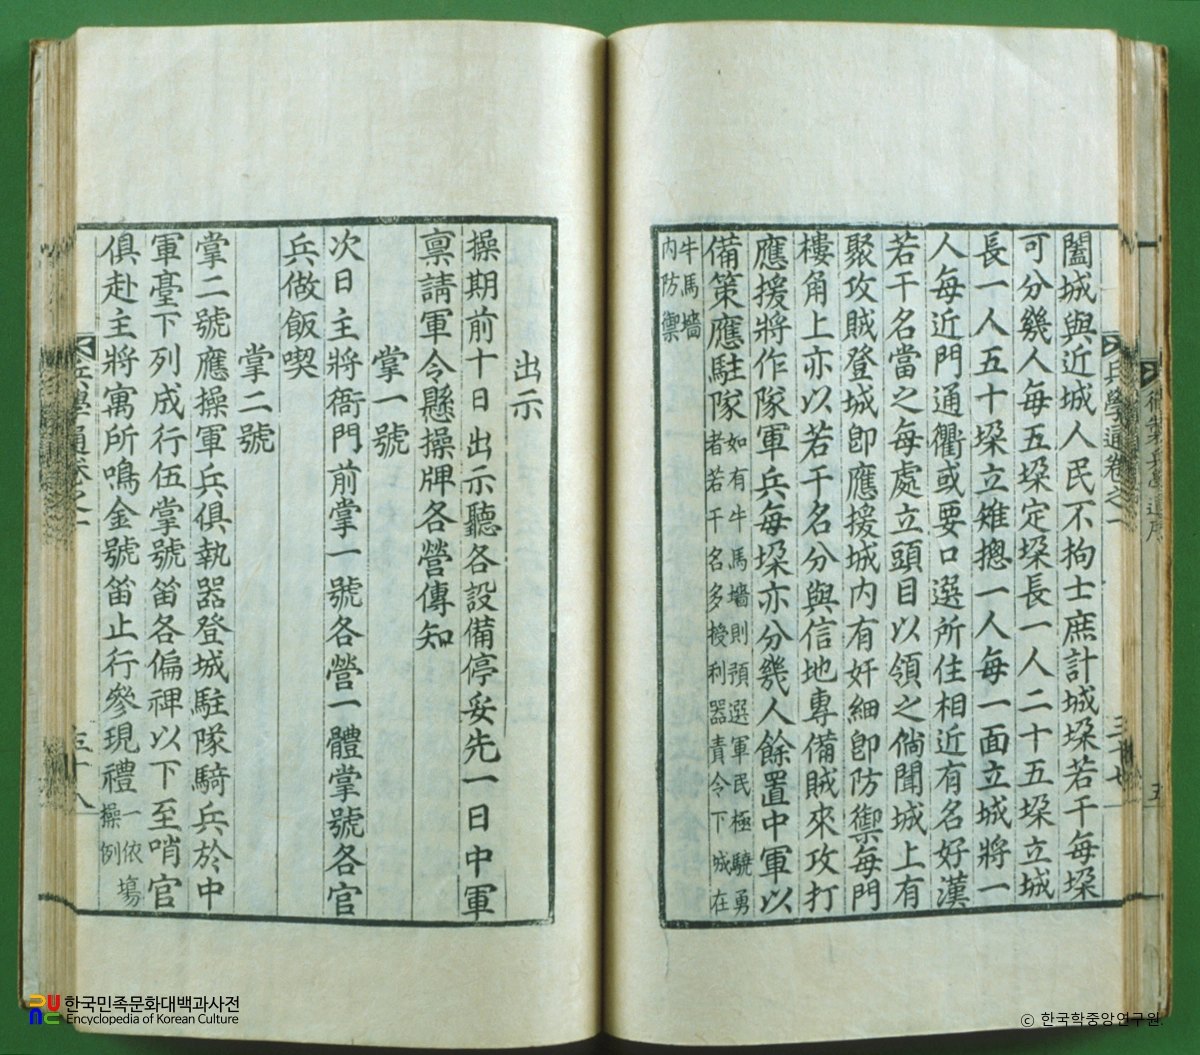 闔城與近城人民不拘士庶計城垜若干每垜
可分幾人每五垜定垜長一人二十五垜立城
長一人五十垜立雉摠一人每一面立城將一
人每近門通衢或要口選所住相近有名好漢
若干名當之每處立頭目以領之倘聞城上有
聚攻賊登城卽應援城内有奸細卽防禦每門
樓角上亦以若干名分與信地專備賊來攻打
應援將作隊軍兵每垜亦分幾人餘置中軍以
備策應駐隊如有牛馬墻則預選軍民極驍勇
者若干名多授利器責令下城在
牛馬墻
内防禦
兵學通卷之一
三十七
五
出示
操期前十日出示聽各設備停妥先一日中軍
禀請軍令懸操牌各營傳知
掌一號
次日主將衙門前掌一號各營一體掌號各官
兵做飯喫
掌二號
掌二號應操軍兵俱執器登城駐隊騎兵於中
軍臺下列成行伍掌號笛各偏裨以下至哨官
俱赴主將寓所鳴金號笛止行參現禮一依塲
操例
兵學通卷之一
三十八
한국민족문화대백과사전
Encyclopedia of Korean Culture
ⓒ 한국학중앙연구원.